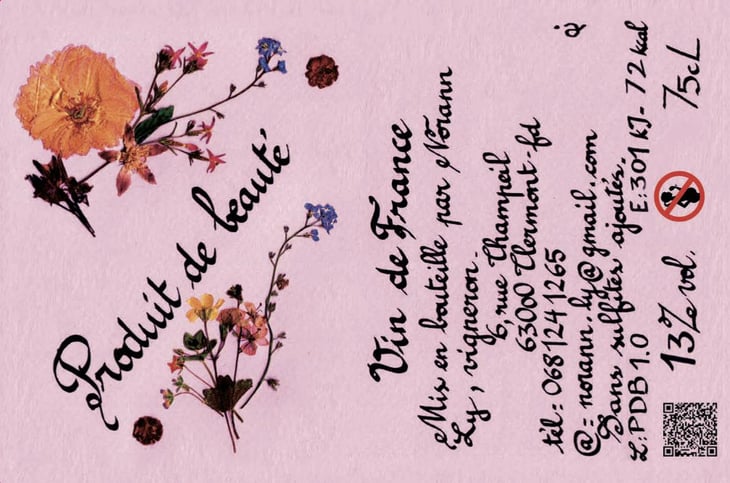 Produit de beauté
Vin de France
Mis en bouteille par Norann
Ly, vigneron.
6, rue Champeil
63000 Clermont-fd
tél: 0681241265
@: norann.ly@gmail.com
Sans sulfites ajoutés.
L:PDB1.0 E:301KJ-72kcal
13% vol. 75cL